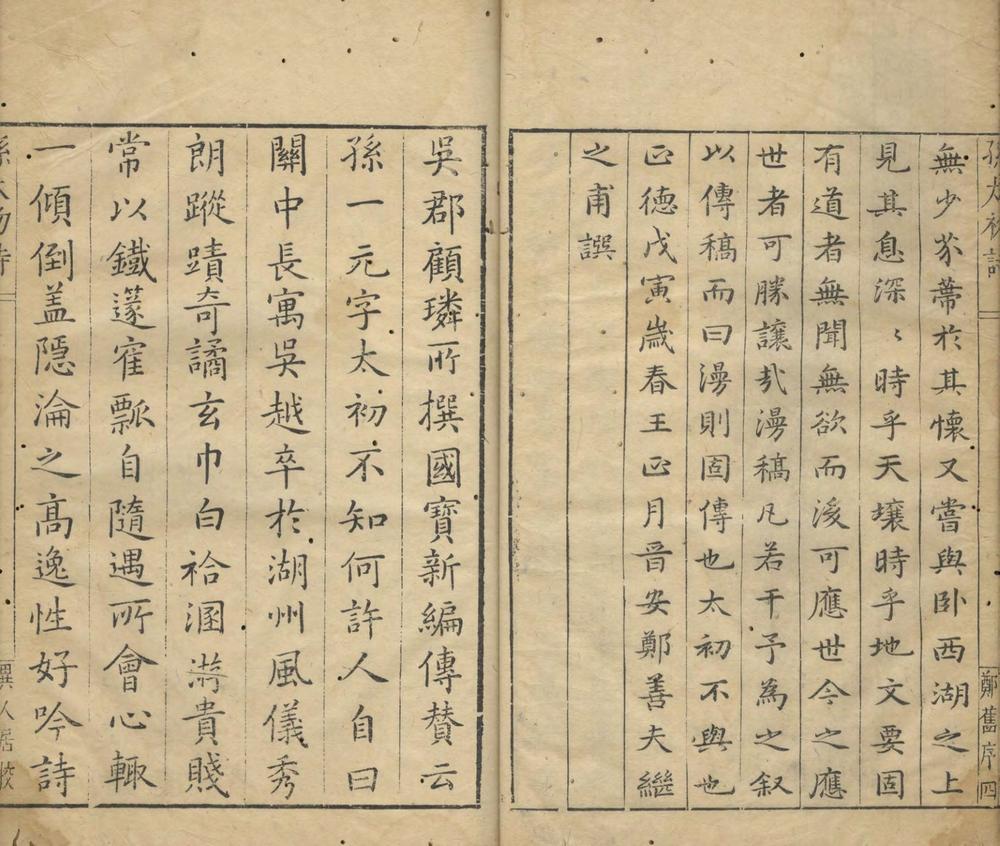 孫太初詩
鄭舊序四
無少芥蔕於其懷又嘗與卧西湖之上
見其息深〻時乎天壤時乎地文要固
有道者無聞無欲而後可應世今之應
世者可勝讓㢤漫稿凡若干予為之叙
以傳稿而曰漫則固傳也太初不與也
正德戊寅歲春王正月晋安鄭善夫繼
之甫譔
吳郡顧璘所撰國寶新編傳賛云
孫一元字太初不知何許人自曰
關中長寓吳越卒於湖州風儀秀
朗蹤蹟奇譎玄巾白袷溷游貴賤
常以鐵篴寉瓢自隨遇所會心輙
一傾倒盖隱淪之高逸性好吟詩
孫太初詩